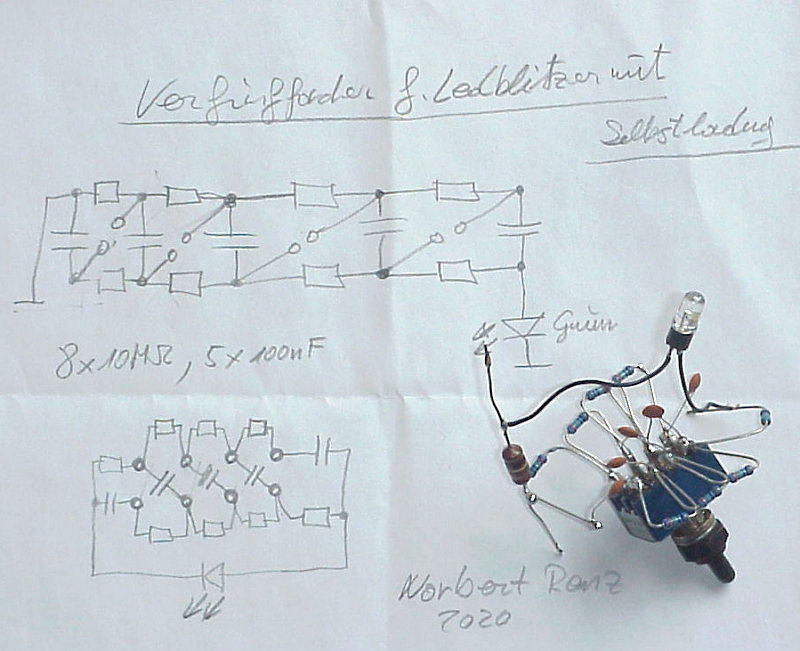 Verfünffacher f. Ledblitzer mit
Selbstladung
Grün
8x10MΩ, 5x100nF
Norbert Renz
2020